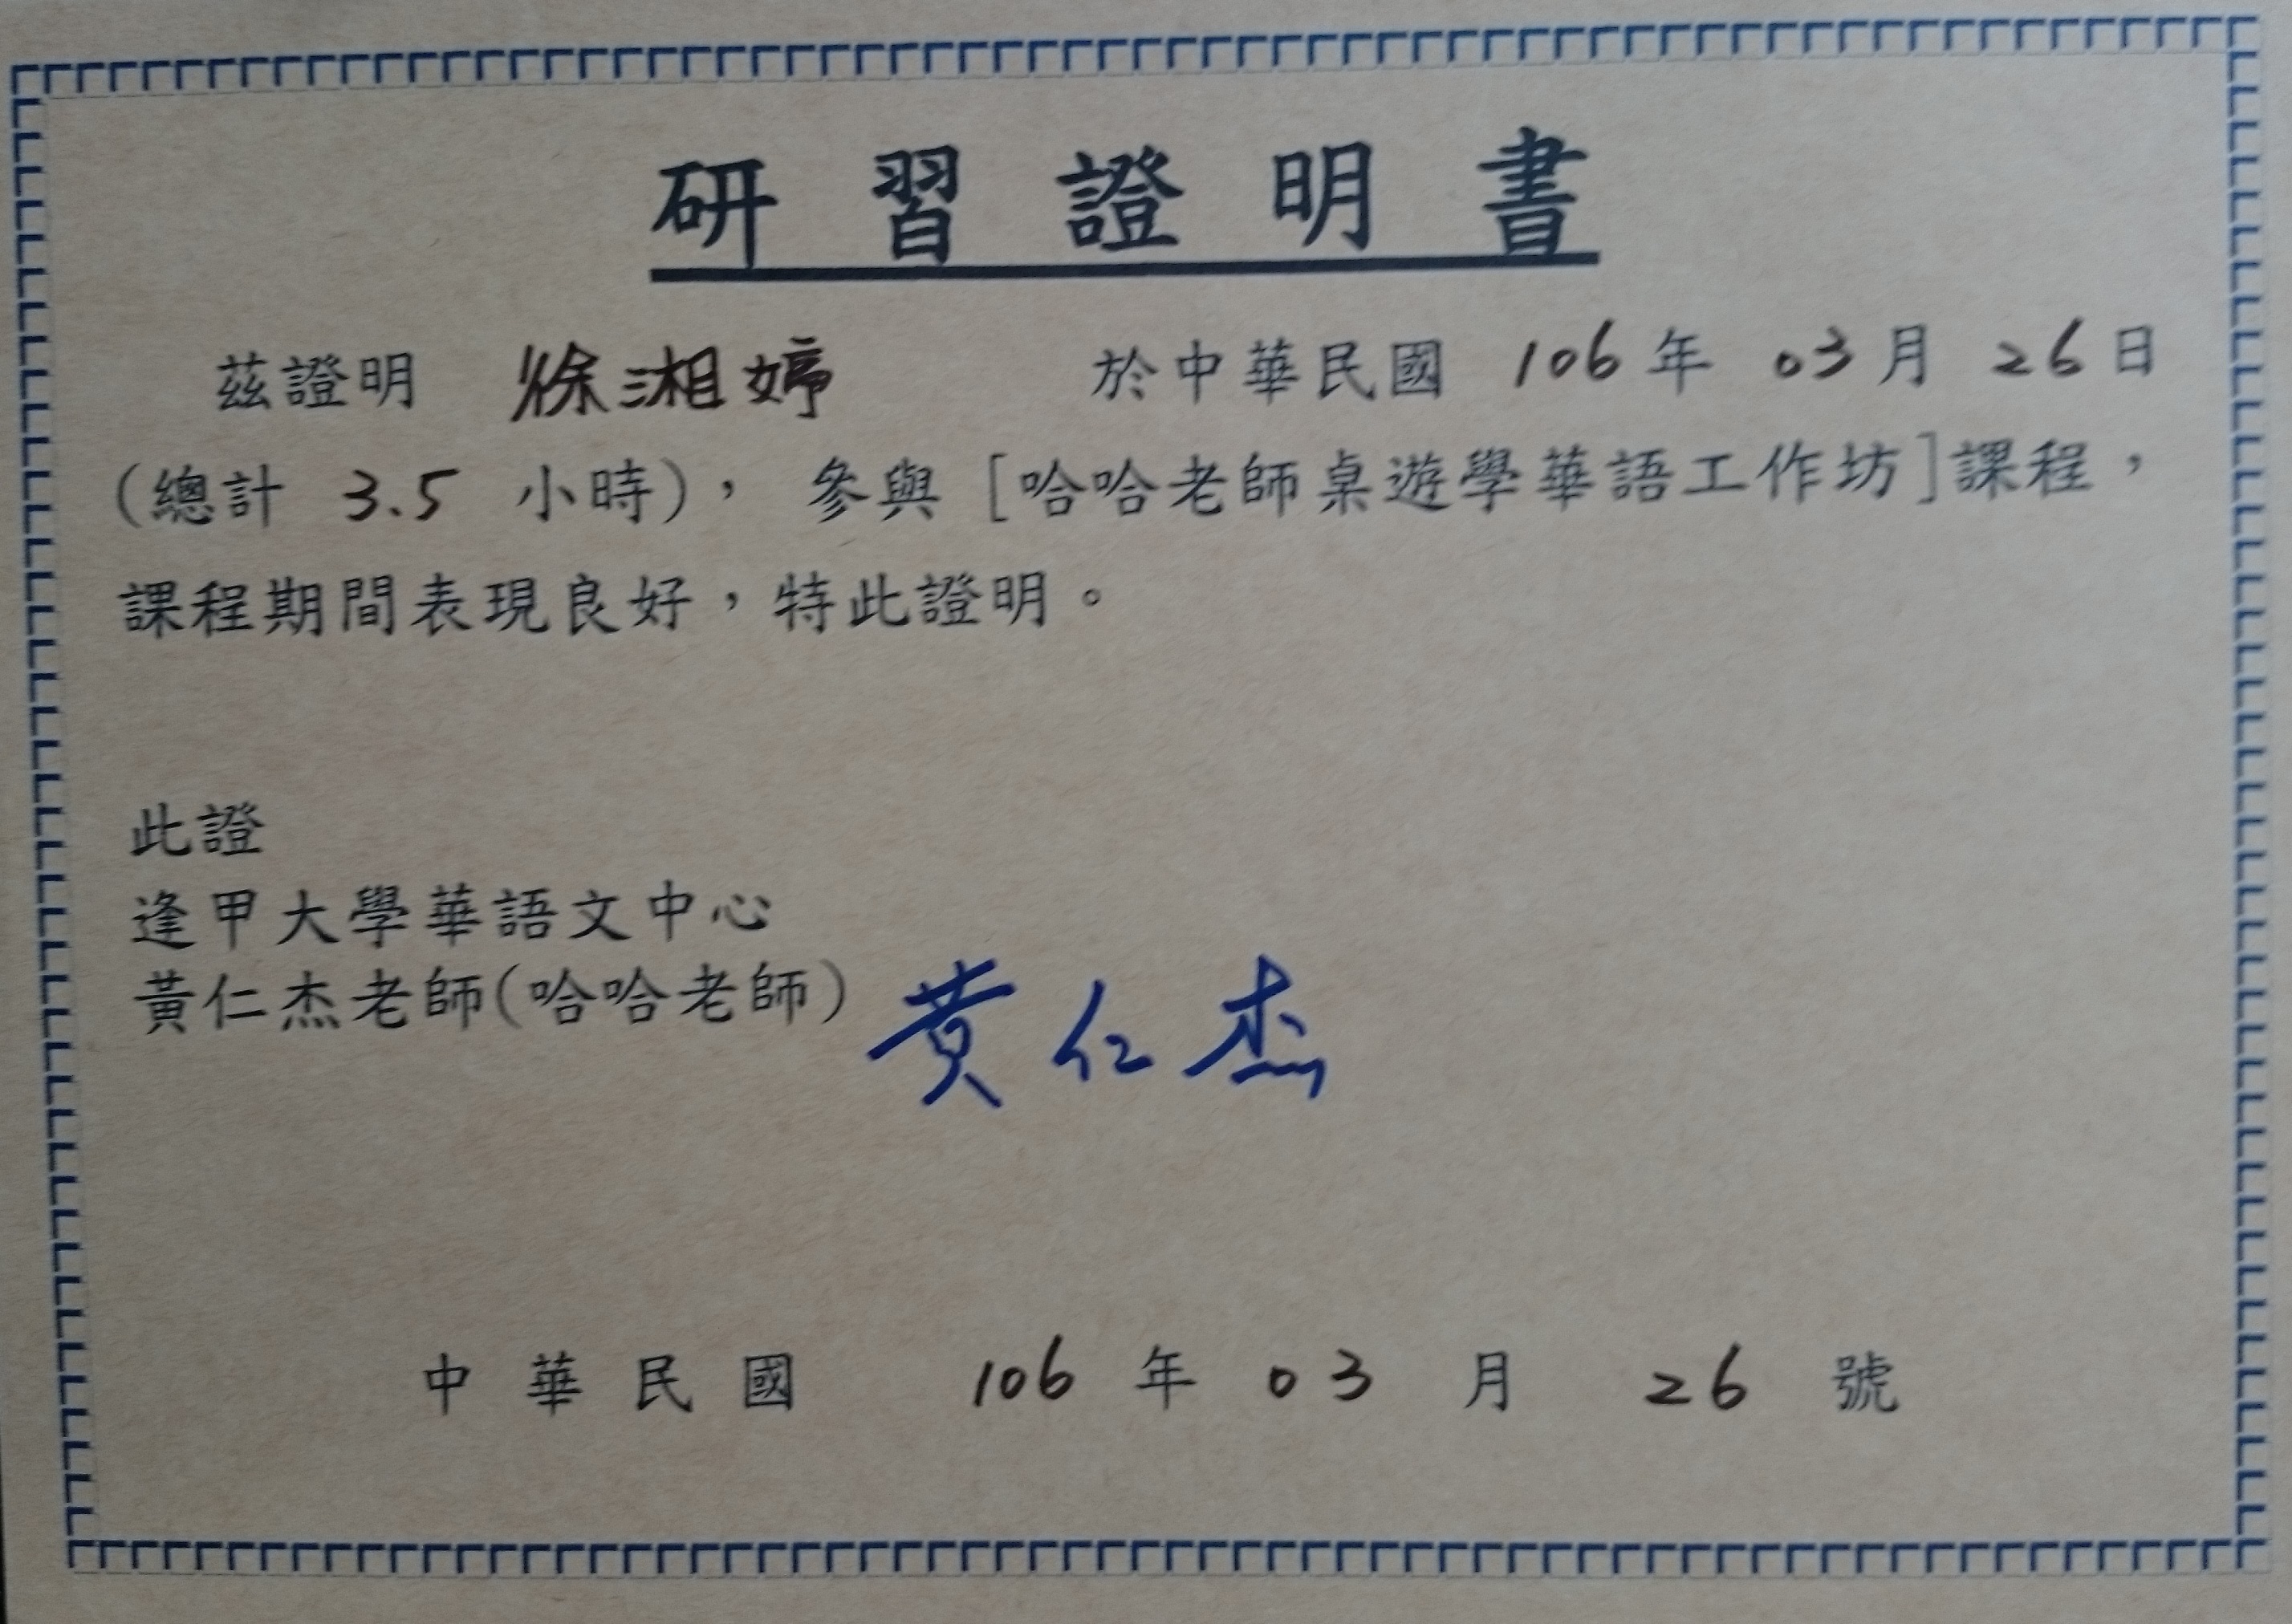 研習證明書
茲證明 徐湘婷 於中華民國 106 年 03 月 26 日
(總計 3.5 小時)， 參與 [哈哈老師桌遊學華語工作坊]課程，
課程期間表現良好，特此證明。
此證
逢甲大學華語文中心
黃仁杰老師(哈哈老師) 黃仁杰
中華民國 106 年 03 月 26 號